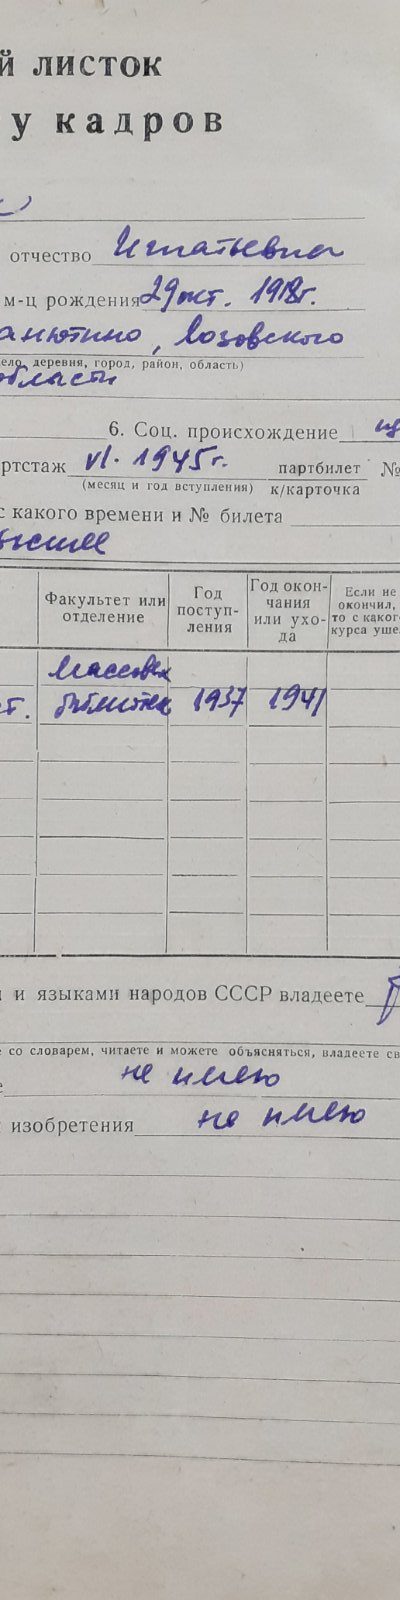 й листок
у кадров
отчество Игнатьевна
м-ц рождения 29 окт. 1918г.
анютино, Лозовского
ело, деревня, город, район, область)
области
6. Соц. происхождение
ртстаж VI. 1945г. партбилет №
(месяц и год вступления) к/карточка
с какого времени и № билета
высшее
Факультет или отделение Год поступ- ления Год окон- чания или ухо- да Если не окончил, то с каког курса уше
Массовых
ст. библиотек 1937 1941
и языками народов СССР владеете
е со словарем, читаете и можете объясняться, владеете св
е не имею
изобретения не имею